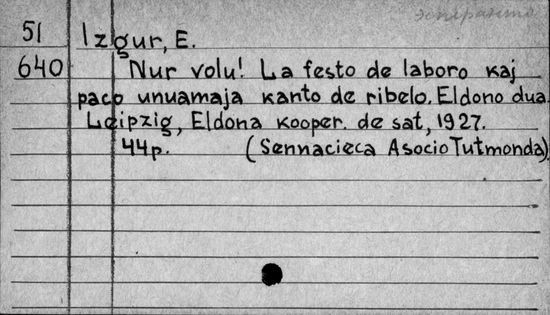 эсперанто
51 Izgur, E.
640 Nur volu! La festo de laboro kaj
paco unuamaja kanto de ribelo. Eldono dua.
Leipzig, Eldona kooper. de sat, 1927.
44p. (Sennacieca Asocio Tutmonda)